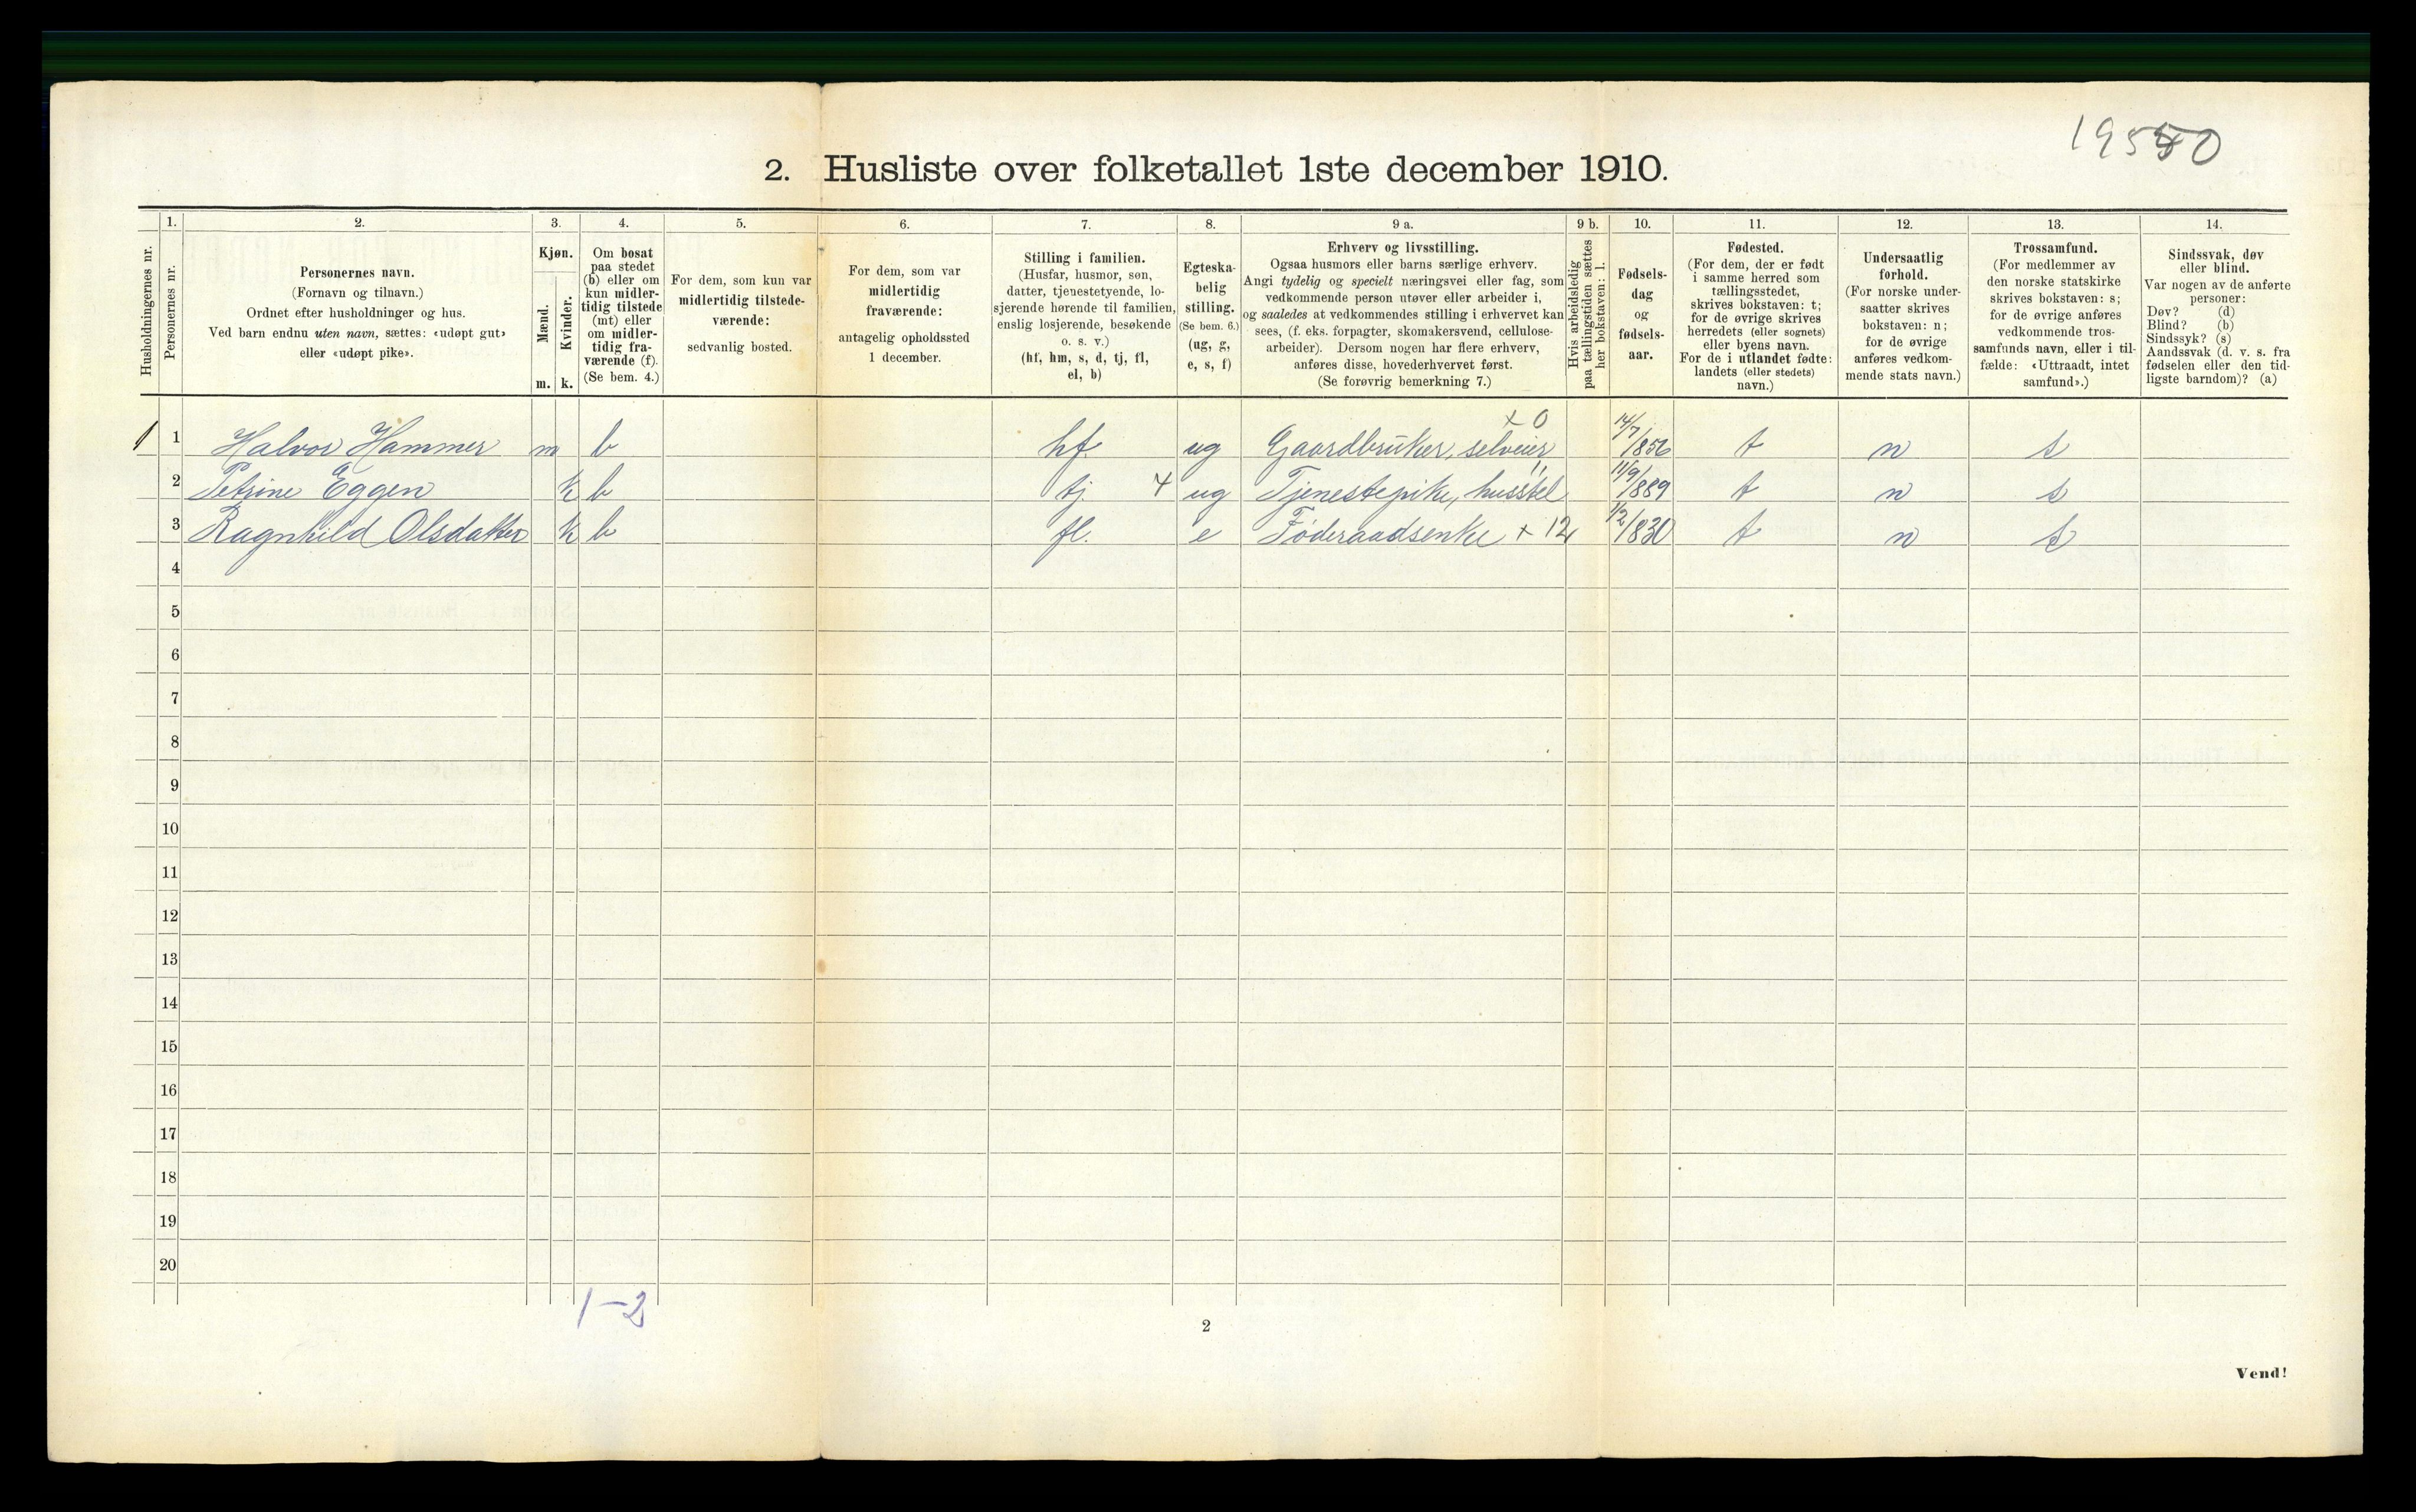 19550
2. Husliste over folketallet 1ste december 1910.
Husholdningernes nr.
1.
Personernes nr.
2.
Personernes navn.
(Fornavn og tilnavn.)
Ordnet efter husholdninger og hus.
Ved barn endnu uten navn, sættes: «udøpt gut»
eller «udøpt pike».
3.
Kjøn.
Mænd.
Kvinder.
m. k.
4.
Om bosat
paa stedet
(b) eller om
kun midler-
tidig tilstede
(mt) eller
om midler-
tidig fra-
værende (f).
(Se bem. 4.)
5.
For dem, som kun var
midlertidig tilstede-
værende:
sedvanlig bosted.
6.
For dem, som var
midlertidig
fraværende:
antagelig opholdssted
1 december.
7.
Stilling i familien.
(Husfar, husmor, søn,
datter, tjenestetyende, lo-
sjerende hørende til familien,
enslig losjerende, besøkende
o. s. v.)
(hf, hm, s, d, tj, fl,
el, b)
8.
Egteska-
belig
stilling.
(Se bem. 6.)
(ug, g,
e, s, f)
9 a.
Erhverv og livsstilling.
Ogsaa husmors eller barns særlige erhverv.
Angi tydelig og specielt næringsvei eller fag, som
vedkommende person utøver eller arbeider i,
og saaledes at vedkommendes stilling i erhvervet kan
sees, (f. eks. forpagter, skomakersvend, cellulose-
arbeider). Dersom nogen har flere erhverv,
anføres disse, hovederhvervet først.
(Se forøvrig bemerkning 7.)
9 b.
Hvis arbeidsledig
paa tællingstiden sættes
her bokstaven: l.
10.
Fødsels-
dag
og
fødsels-
aar.
11.
Fødested.
(For dem, der er født
i samme herred som
tællingsstedet,
skrives bokstaven: t;
for de øvrige skrives
herredets (eller sognets)
eller byens navn.
For de i utlandet fødte:
landets (eller stedets)
navn.)
12.
Undersaatlig
forhold.
(For norske under-
saatter skrives
bokstaven: n;
for de øvrige
anføres vedkom-
mende stats navn.)
13.
Trossamfund.
(For medlemmer av
den norske statskirke
skrives bokstaven: s;
for de øvrige anføres
vedkommende tros-
samfunds navn, eller i til-
fælde: «Uttraadt, intet
samfund».)
14.
Sindssvak, døv
eller blind.
Var nogen av de anførte
personer:
Døv? (d)
Blind? (b)
Sindssyk? (s)
Aandssvak (d. v. s. fra
fødselen eller den tid-
ligste barndom)? (a)
1 1 Halvor Hammer m b hf. ug Gaardbruker, selveier x 0 14/7 1856 t n s
2 Petrine Eggen k b tj. 4 ug Tjenestepike, husstel 11/9 1889 t n s
3 Ragnhild Olsdatter k b fl. e Føderaadsenke x 12 1/2 1830 t n s
4
5
6
7
8
9
10
11
12
13
14
15
16
17
18
19
20
1-2
2
Vend!